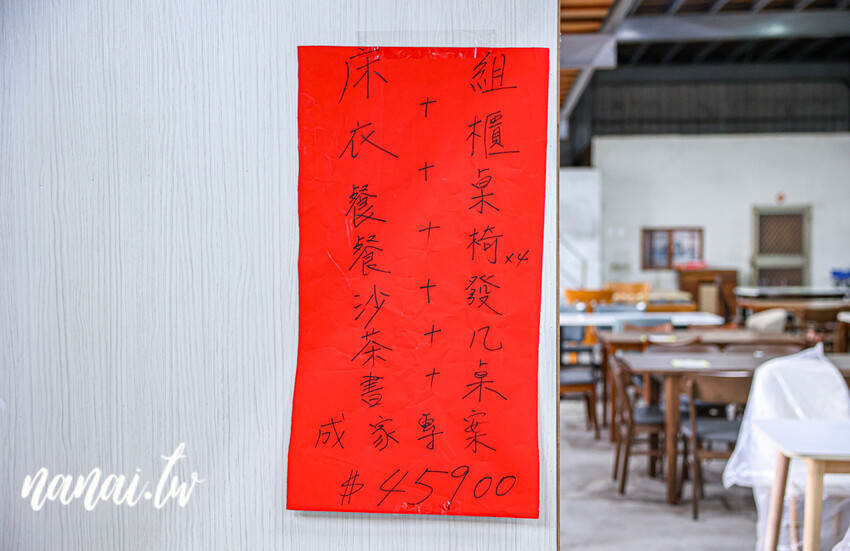 床組
+
衣櫃
+
餐桌
+
餐椅x4
+
沙發
+
茶几
+
書桌
成家專案
$45900
nanai.tw